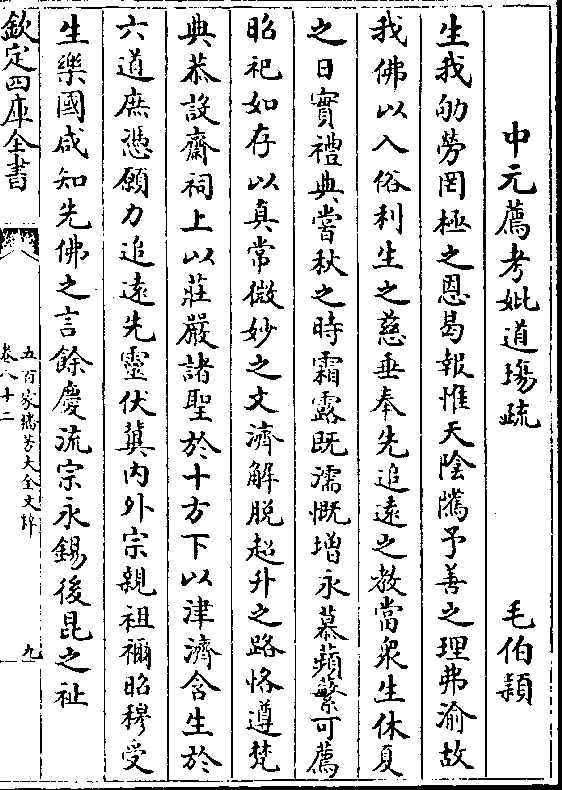 中元薦考妣道塲疏　毛伯穎
生我劬勞罔極之恩曷報惟天陰隲予善之理弗渝故
我佛以入俗利生之慈垂奉先追遠之教當衆生休夏
之日實禮典嘗秋之時霜露既濡慨增永慕蘋蘩可薦
昭祀如存以真常微妙之文濟解脱超升之路恪遵梵
典恭設齋祠上以莊嚴諸聖於十方下以津濟含生於
六道庶憑願力追遠先靈伏冀内外宗親祖禰昭穆受
生樂國咸知先佛之言餘慶流宗永錫後昆之祉
欽定四庫全書
五百家播芳大全文粹
卷八十二
九